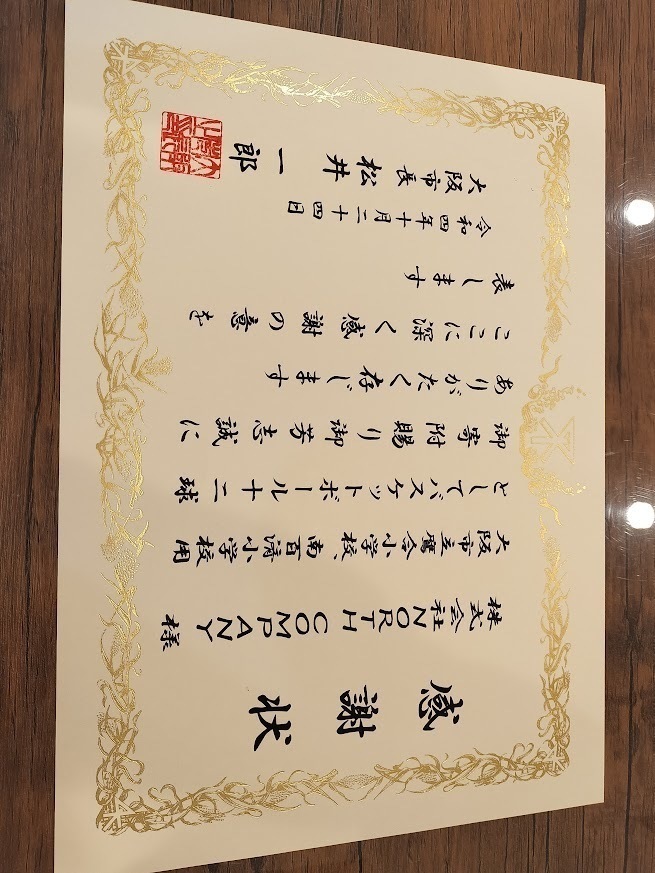 感謝状
株式会社NORTH COMPANY 様
大阪市立鷺洲小学校、南百済小学校用
としてバスケットボール十二球
御寄附賜り御芳志誠に
ありがたく存じます
ここに深く感謝の意を
表します
令和四年十月二十四日
大阪市長 松井 一郎